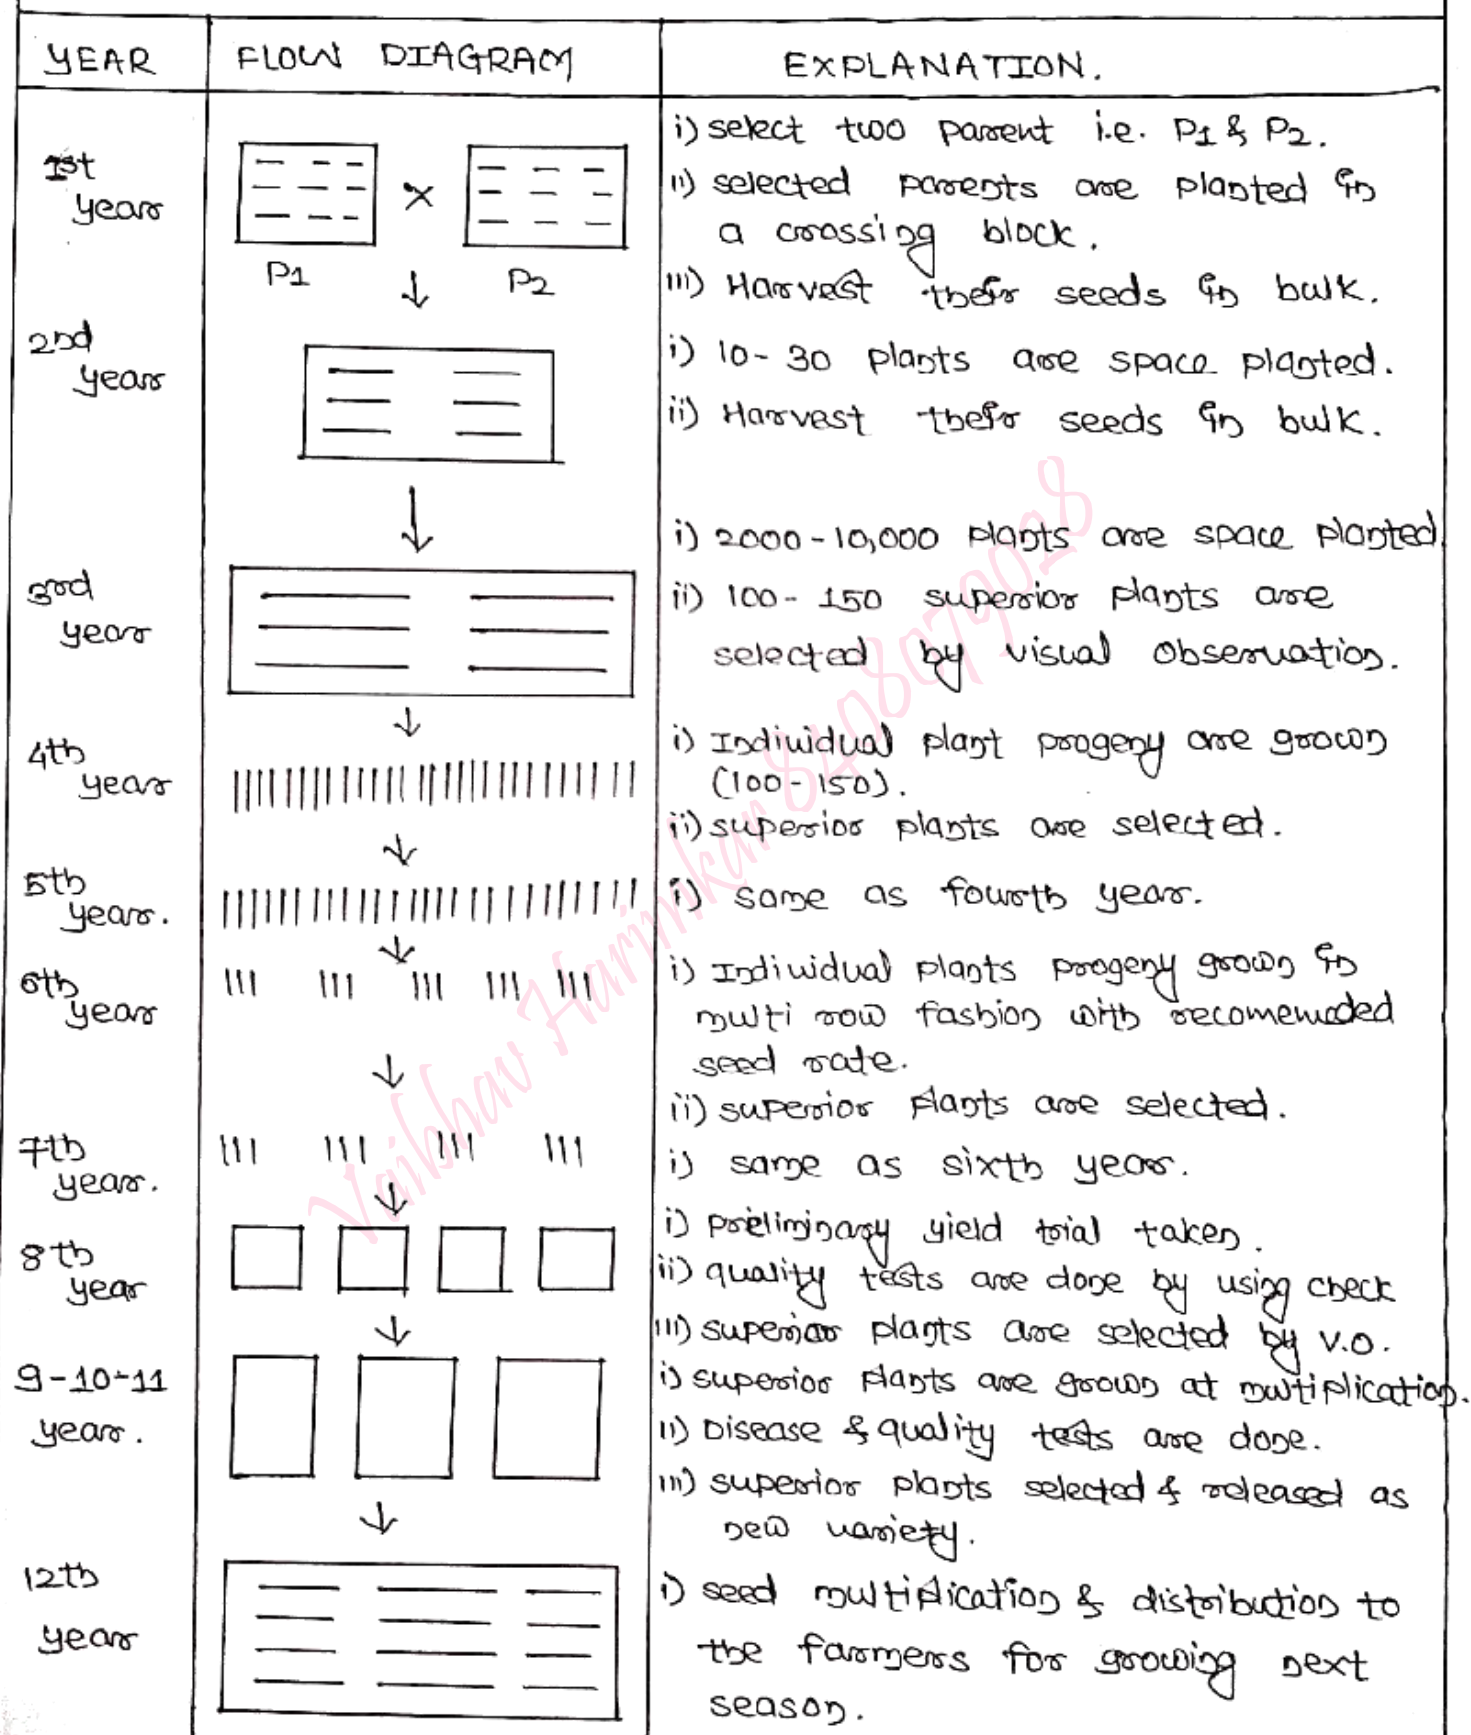 YEAR FLOW DIAGRAM EXPLANATION.
1st
year
P1 × P2
i) select two parent i.e. P1 & P2.
ii) selected parents are planted in
a crossing block.
iii) Harvest their seeds in bulk.
2nd
year
i) 10-30 plants are space planted.
ii) Harvest their seeds in bulk.
3rd
year
i) 2000-10,000 plants are space planted.
ii) 100-150 superior plants are
selected by visual observation.
4th
year
i) Individual plant progeny are grown
(100-150).
ii) superior plants are selected.
5th
year.
i) same as fourth year.
6th
year
i) Individual plants progeny grown in
multi row fashion with recomemded
seed rate.
ii) superior plants are selected.
7th
year.
i) same as sixth year.
8th
year
i) preliminary yield trial taken.
ii) quality tests are done by using check
iii) superior plants are selected by V.O.
9-10-11
year.
i) superior plants are grown at multiplication.
ii) Disease & quality tests are done.
iii) superior plants selected & released as
new variety.
12th
year
i) seed multiplication & distribution to
the farmers for growing next
season.
Vaibhav Harinkar 8498079028